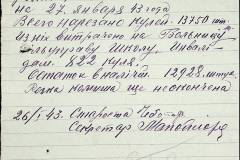 на 27. января 43 года
Всего нарезано кулей. 13750 шт.
из них витрачено на Больницу
Школу, Инвал.
дом. 822 куля.
Остаток в наличіи 12928 штук
Резка комиша ще неокончена
26/I 43. Староста
Секретар